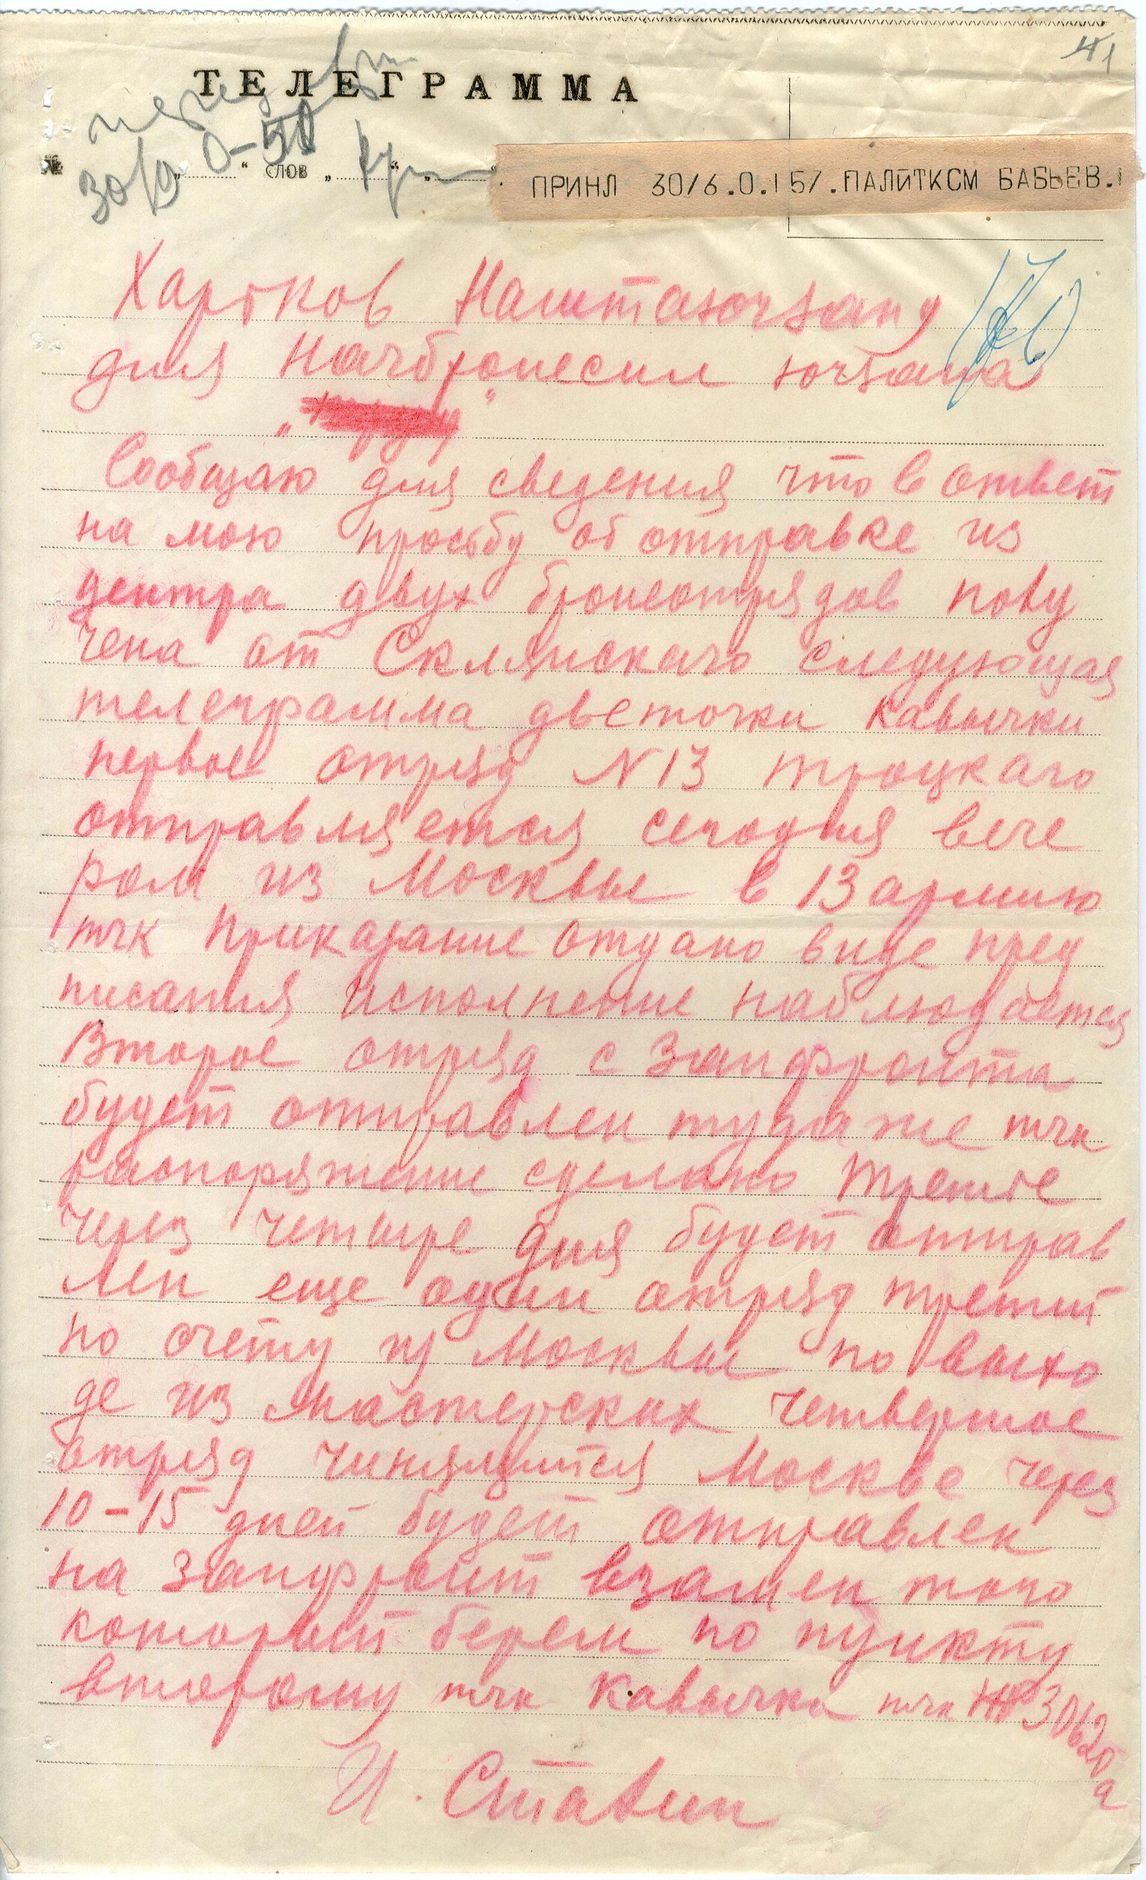 41
ТЕЛЕГРАММА
передать
30/9 0-50
№ " " слов " " "
ПРИНЛ 30/6.0.157.ПАЛИТКСМ БАБЬЕВ.
Харьков Наштаючзапу
для Начбронесил ючзапа
Сообщаю для сведения что в ответ
на мою просьбу об отправке из
центра двух бронеотрядов полу
чена от Склянскаго следующая
телеграмма дветочки кавычки
первое отряд N 13 троцкаго
отправляется сегодня вече
ром из Москвы в 13 армию
тчк Приказание отдано виде пред
писания исполнение наблюдается
Второе отряд с Запфронта
будет отправлен туда же тчк
распоряжение сделано Третье
через четыре дня будет отправ
лен еще один отряд третий
по счету из Москвы по выхо
де из мастерских четвертое
отряд чинящийся Москве через
10-15 дней будет отправлен
на Запфронт взамен того
который берем по пункту
второму тчк Кавычка тчк НР 30620а
И. Сталин